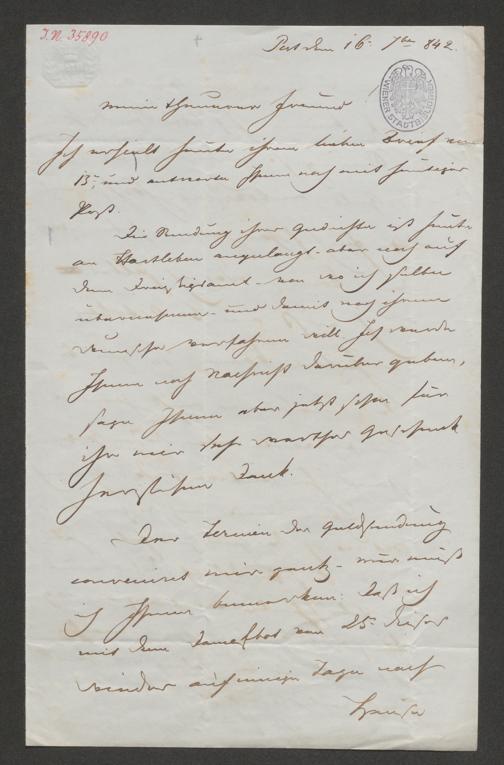 J.N. 35890
Pest den 16. 7ber 842.
WIENER STADTBIBLIOTHEK
Mein theuerer Freund
Ich erhielt heute ihren lieben Brief vom
13. und antworte Ihnen noch mit heutiger
Post.
Die Sendung ihrer Gedichte ist heute
an Hartleben angelangt, aber noch auf
dem Dreißigstamt - von wo ich selbe
übernehmen - und damit nach ihrem
Wunsche verfahren will. Ich werde
Ihnen noch Nachricht darüber geben,
sage Ihnen aber jetzt schon für
ihr mir sehr werthes Geschenk
herzlichen Dank.
Der Termin der Geldsendung
conveniret mir ganz - nur muß
ich Ihnen bemerken: daß ich
mit dem Dampfbot vom 25. dieser
wieder auf einige Tage nach
Hause